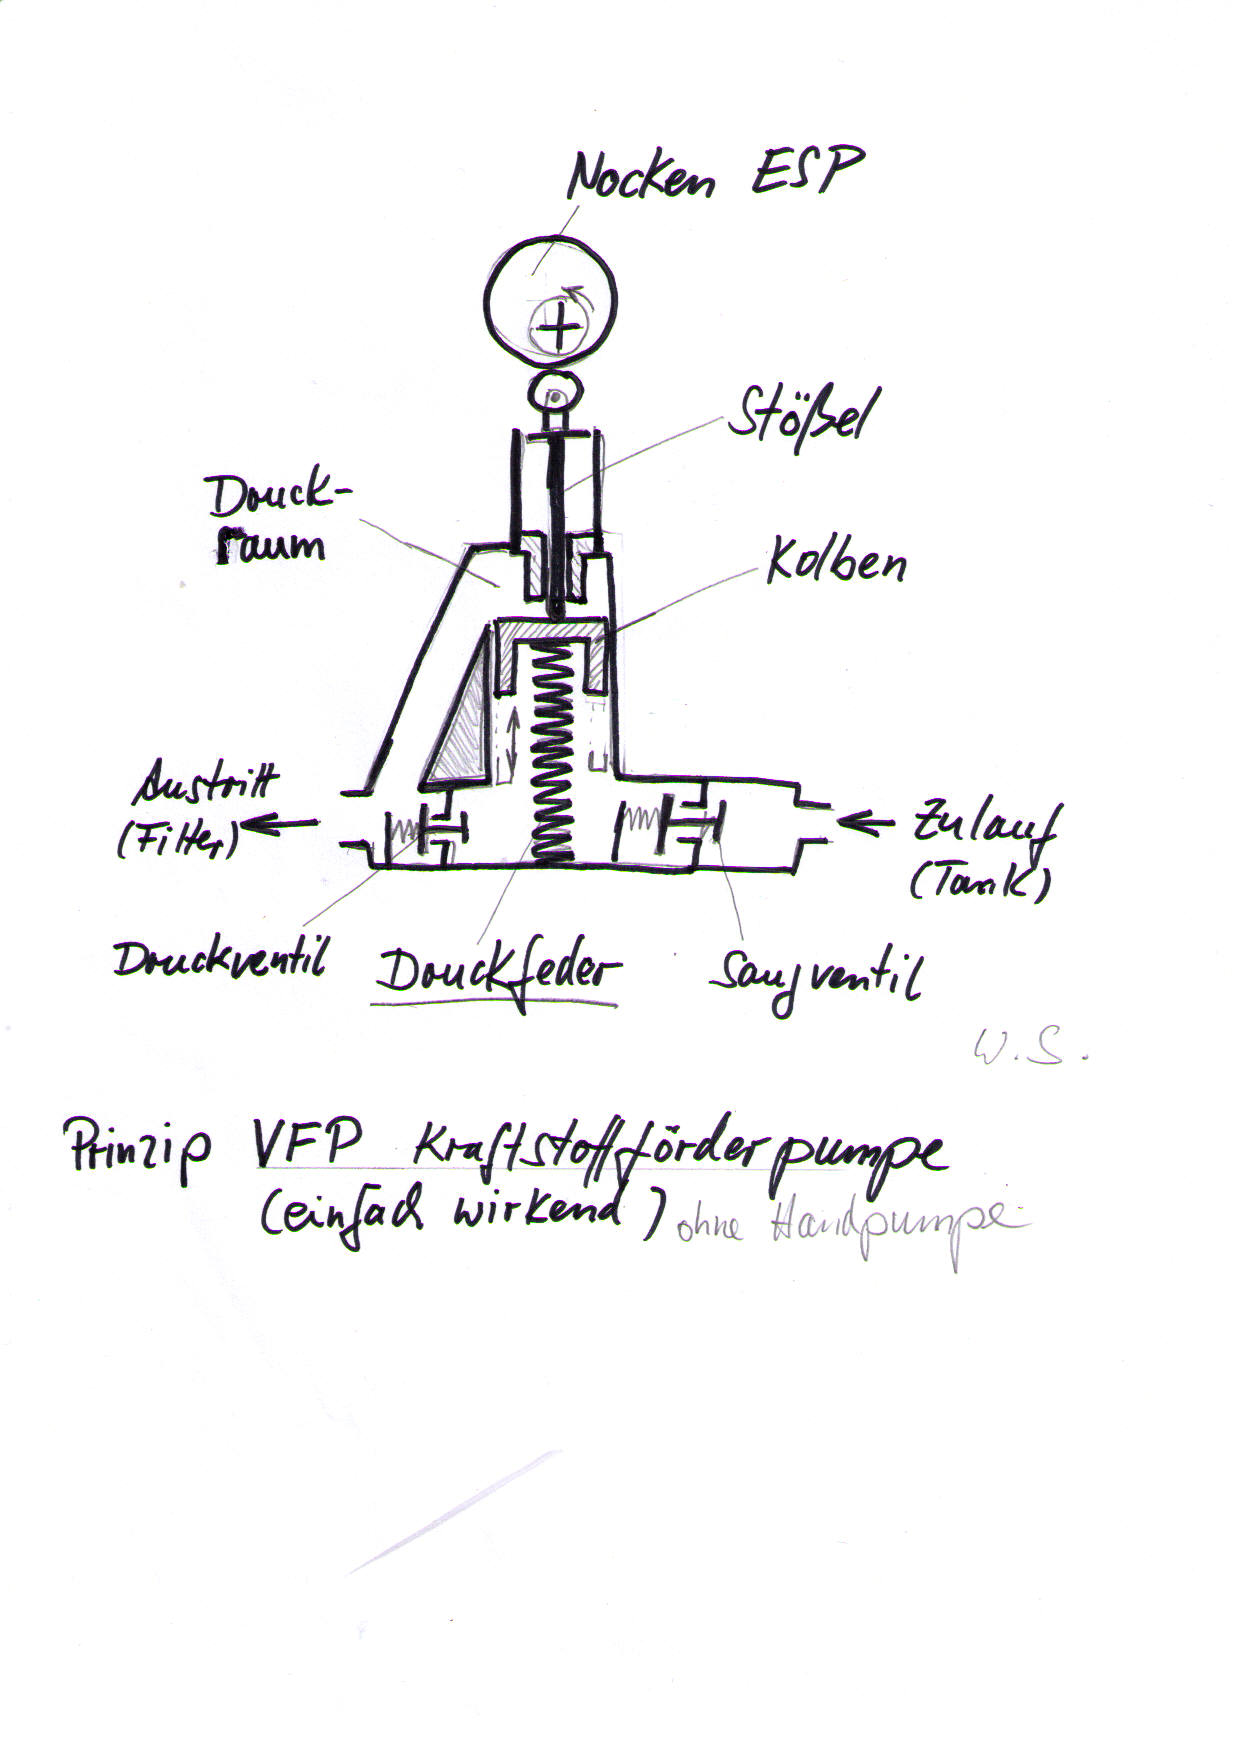 Nocken ESP
Stößel
Druck-
raum
Kolben
Austritt
(Filter)
Zulauf
(Tank)
Druckventil
Druckfeder
Saugventil
W.S.
Prinzip VFP Kraftstoffförderpumpe
(einfach wirkend) ohne Handpumpe